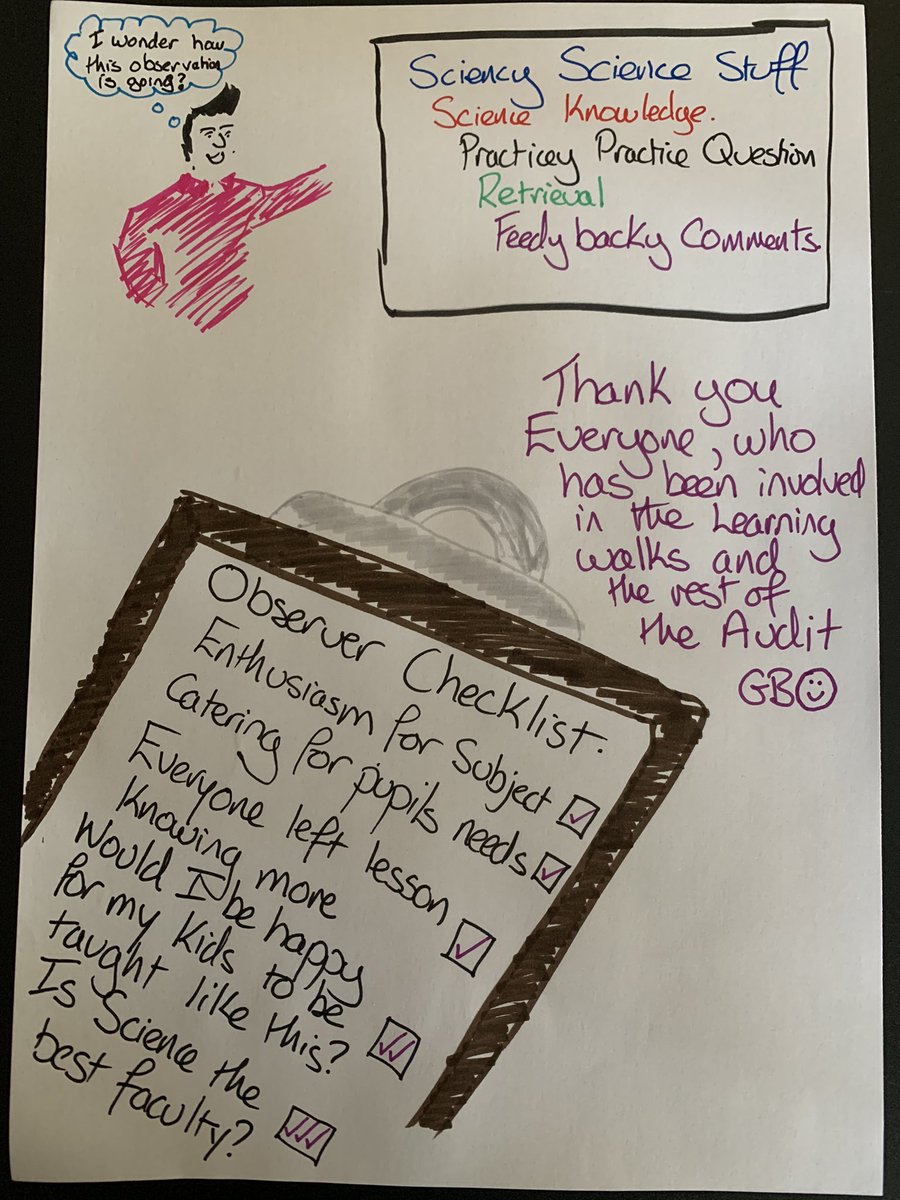 I wonder how
this observation
is going?
Sciency Science Stuff
Science Knowledge.
Practicey Practice Question
Retrieval
Feedybacky Comments.
Thank you
Everyone, who
has been involved
in the Learning
walks and
the rest of
the Audit
GB
Observer Checklist.
Enthusiasm for Subject
Catering for pupils needs
Everyone left lesson
Knowing more
Would I be happy
for my Kids to be
taught like this?
Is Science the
best faculty?